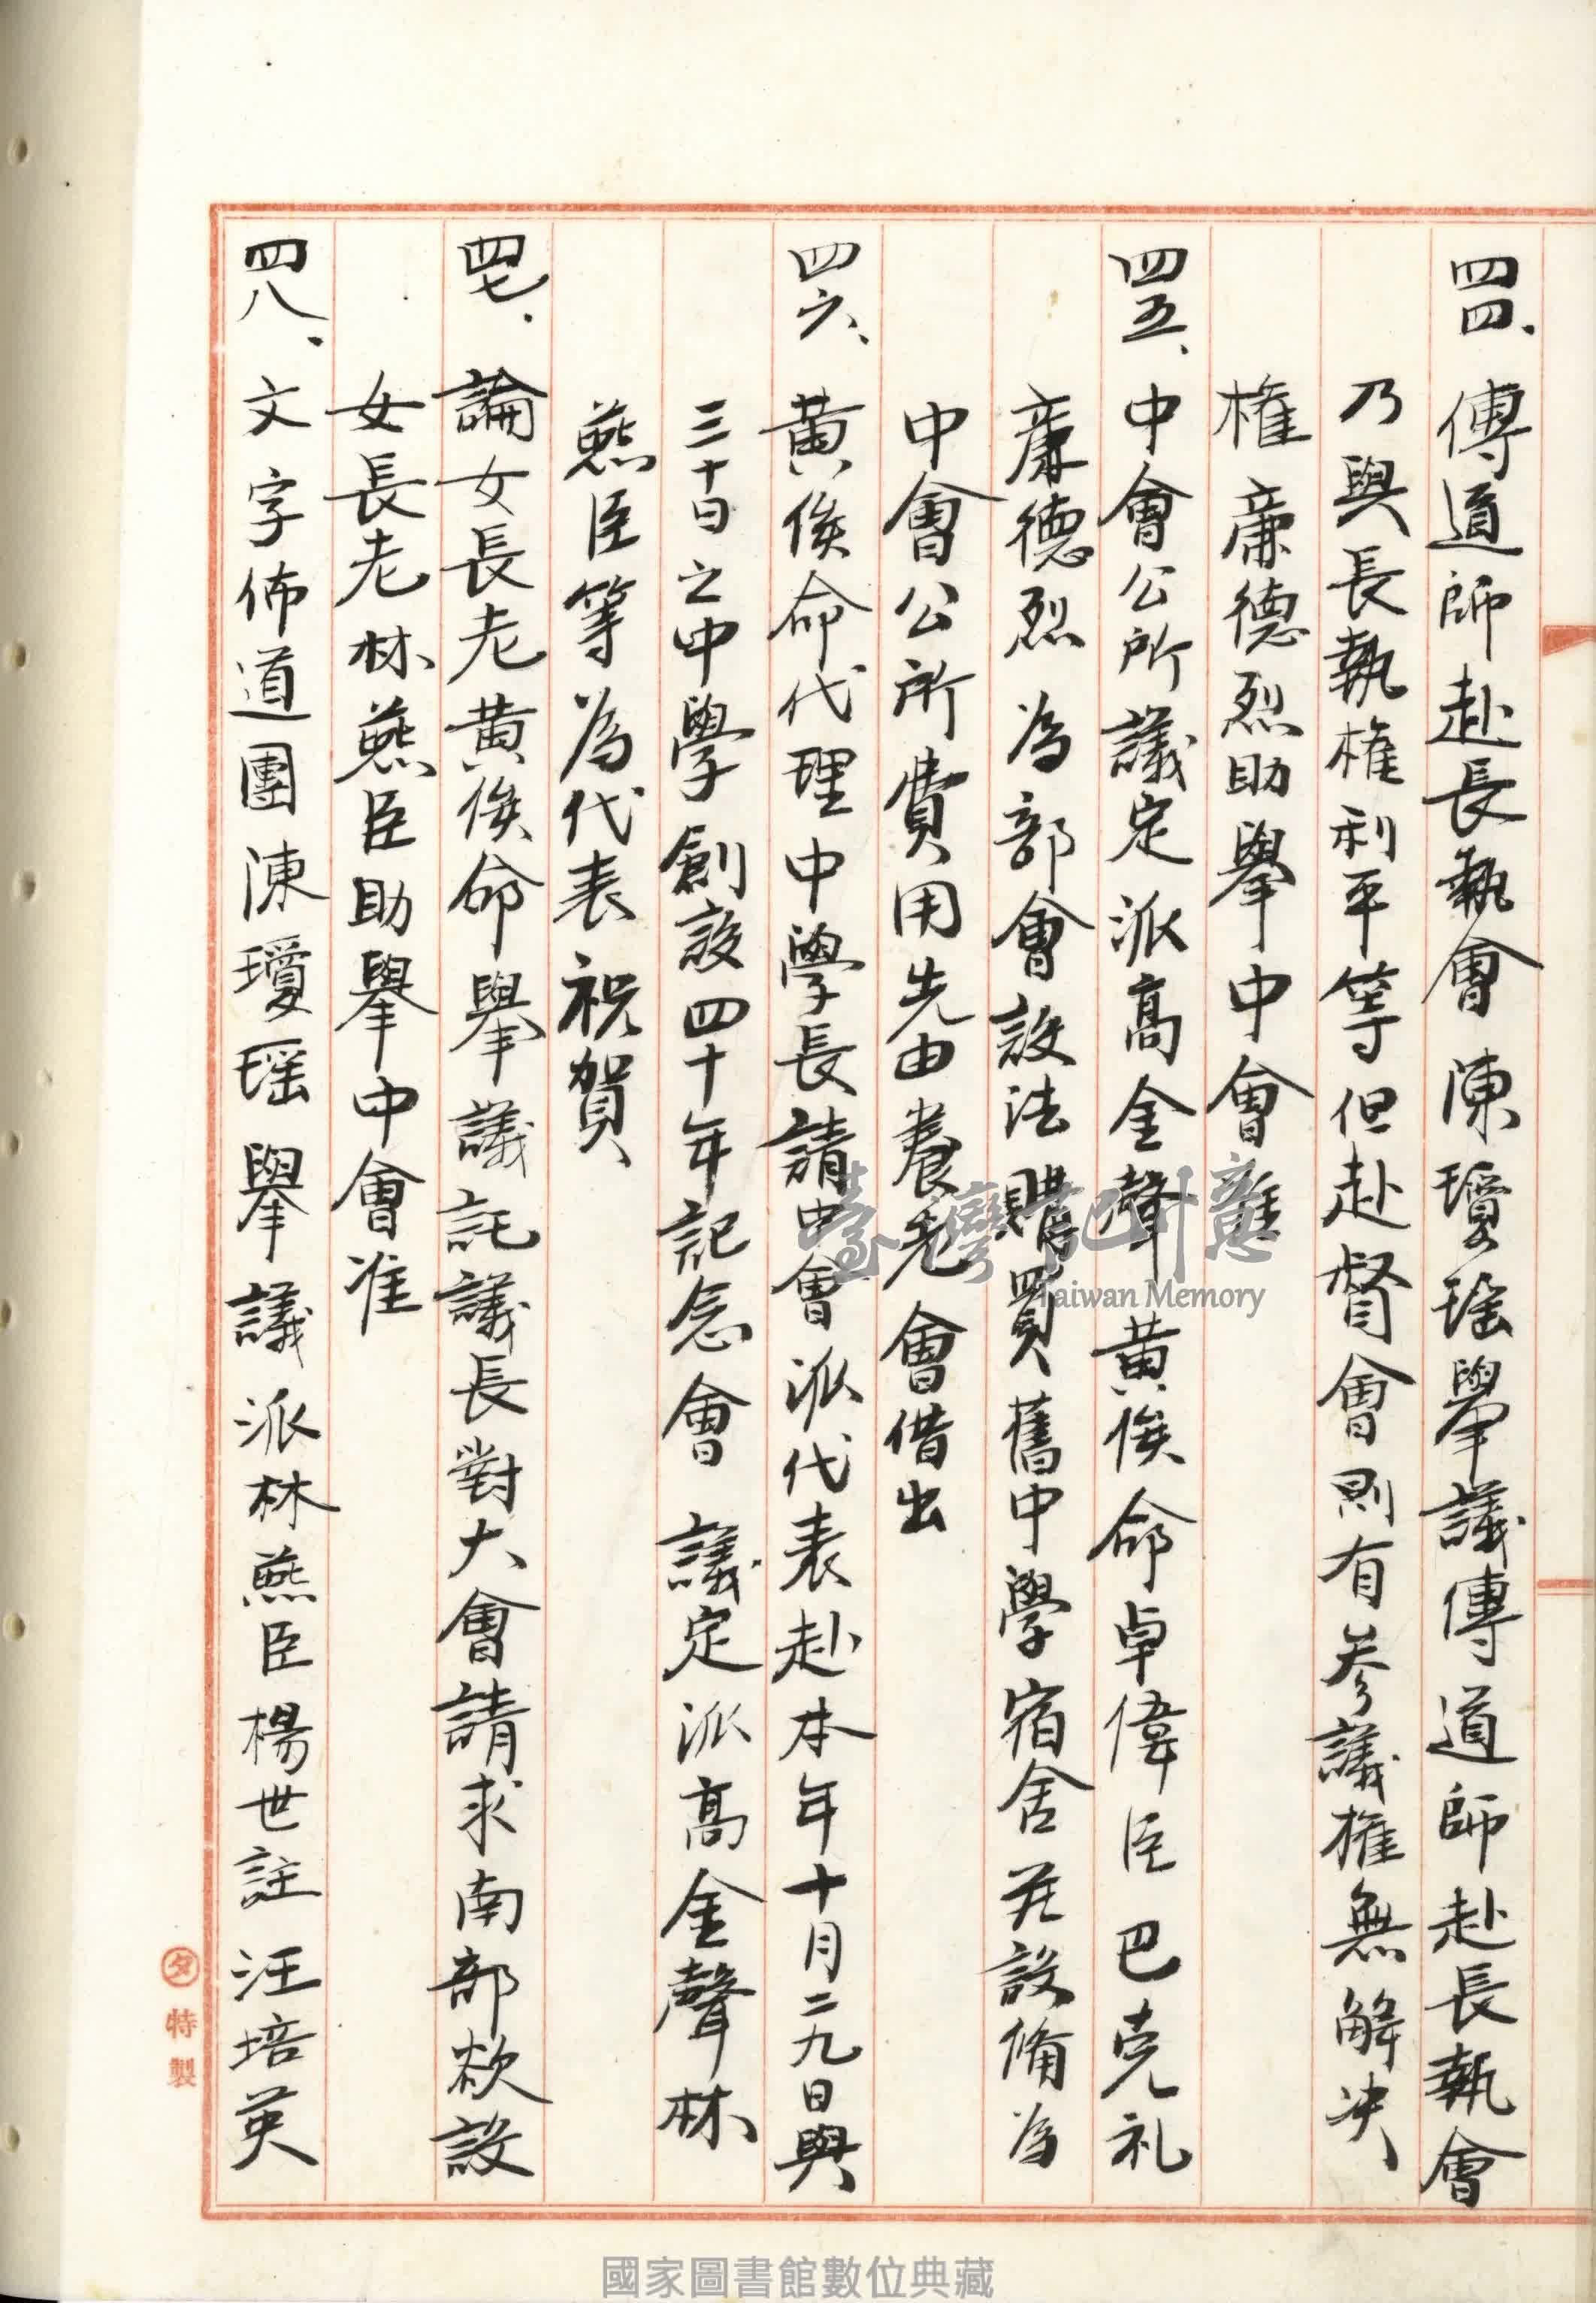 四四、傳道師赴長執會 陳瓊瑤舉議傳道師赴長執會
乃與長執權利平等但赴督會則有參議權無解决
權 廉德烈助舉中會准
四五、中會公所議定派高金聲 黃俟命卓偉臣 巴克礼
廉德烈 為部會設法購買舊中學宿舍並設備為
中會公所費用先由養老會借出
四六、黃俟命代理中學長請中會派代表赴本年十月二九日與
三十日之中學創設四十年記念會 議定派高金聲林
燕臣等為代表祝賀
四七、論女長老黃俟命舉議託議長對大會請求南部欲設
女長老林燕臣助舉中會准
四八、文字佈道團陳瓊瑤舉議派林燕臣楊世註汪培英
タ特製
臺灣記憶
Taiwan Memory
國家圖書館數位典藏